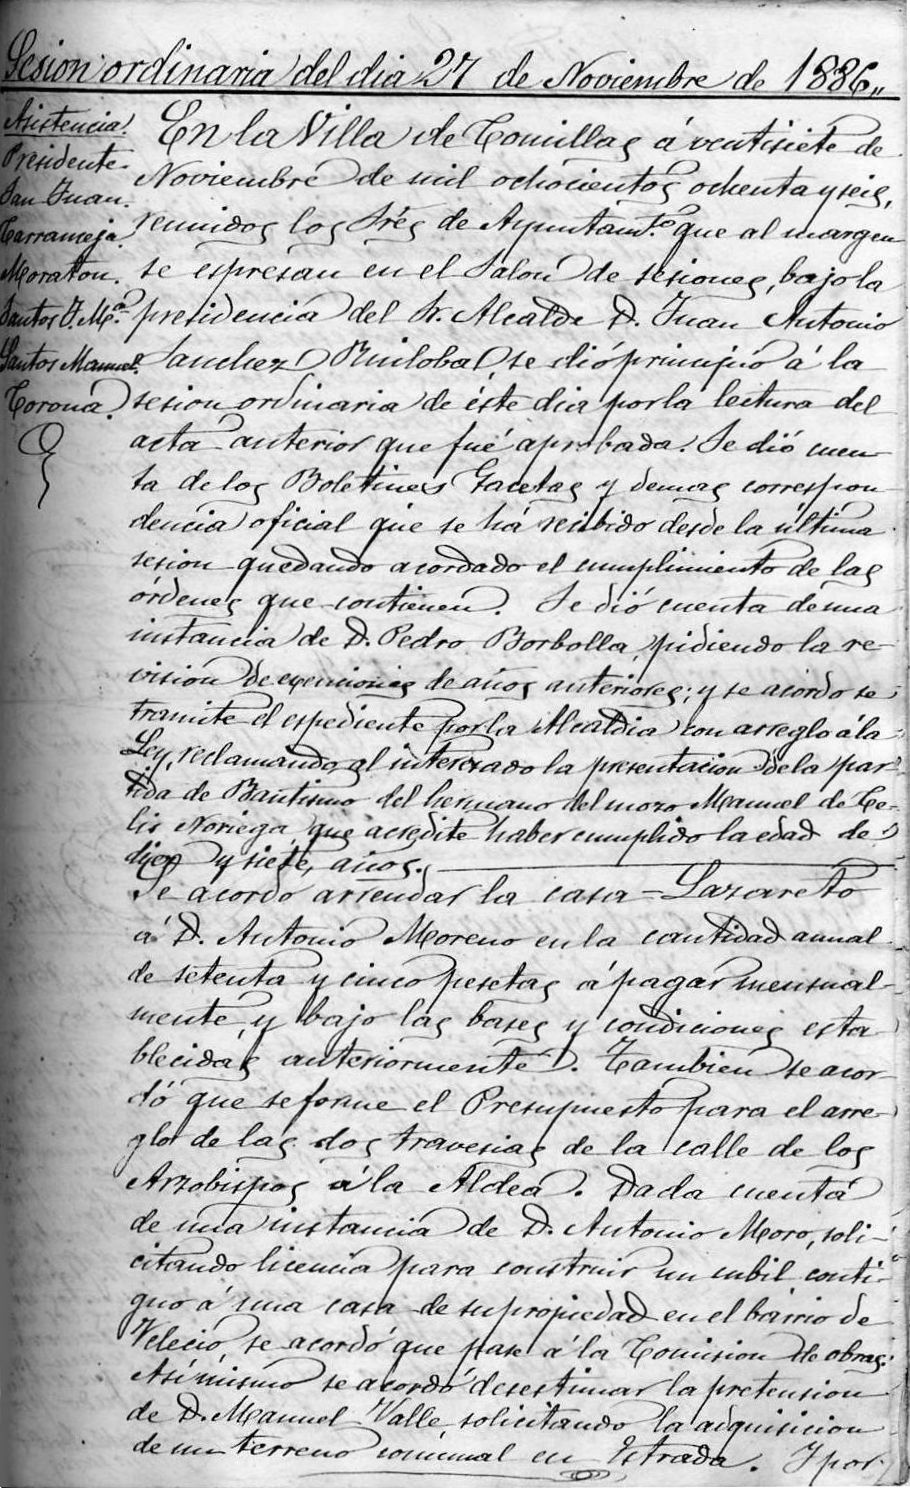 Sesion ordinaria del dia 27 de Noviembre de 1886„
Asistencia.
Presidente.
San Juan.
Carranceja.
Moraton.
Santos J. Mª.
Santos Manuel.
Corona.
En la Villa de Comillas á ventisiete de
Noviembre de mil ochocientos ochenta y seis,
reunidos los Srés de Ayuntamto. que al margen
se espresan en el Salon de sesiones, bajo la
presidencia del Sr. Alcalde D. Juan Antonio
Sanchez Ruiloba, se dió principio á la
sesion ordinaria de éste dia por la lectura del
acta anterior que fué aprobada. Se dió cuen
ta de los Boletines Gacetas y demas correspon
dencia oficial que se há recibido desde la última
sesion quedando acordado el cumplimiento de las
órdenes que contienen. Se dió cuenta de una
instancia de D. Pedro Borbolla, pidiendo la re-
vision de exenciones de años anteriores; y se acordo se
tramite el espediente por la Alcaldia con arreglo á la
Ley, reclamando al interesado la presentacion de la par
tida de Bautismo del hermano del mozo Manuel de Ce-
lis Noriega que acredite haber cumplido la edad de
diez y siete años.
Se acordo arrendar la casa-Lazareto
á D. Antonio Moreno en la cantidad anual
de setenta y cinco pesetas á pagar mensual-
mente, y bajo las bases y condiciones esta
blecidas anteriormente. Tambien se acor
dó que se forme el Presupuesto para el arre-
glo de las dos travesias de la calle de los
Arzobispos á la Aldea. Dada cuenta
de una instancia de D. Antonio Moro, soli-
citando licencia para construir un cubil conti-
guo á una casa de su propiedad en el bárrio de
Velecio, se acordó que pase á la Comision de obras.
Asímismo se acordó desestimar la pretension
de D. Manuel Valle, solicitando la adquisicion
de un terreno comunal en Estrada. Y por